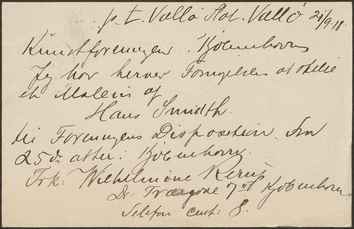 p. t. Vallø Slot. Vallø 21/9.18.
Kunstforeningen. Kjøbenhavn
Jeg har herved Fornøjelsen at stille
et Maleri af
Hans Smidth.
til Foreningens Disposition. Den
25de : Kjøbenhavn.
Frk. Wilhelmine
Dr. 7 Kjøbenhavn
Telefon 8.